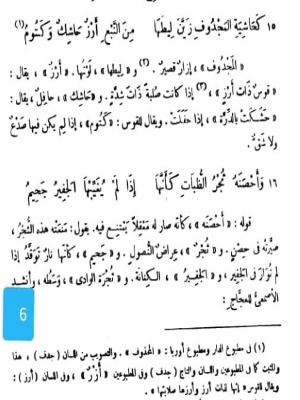 ١٥ كَعَاشِيَةِ المَجْدُوفِ زَيَّنَ لِيطَهَا مِنَ النَّبْعِ أَرْزٌ حَاشِكٌ وَكَتُومُ (١)
« المَجْدُوف » ، إزار قصير . (٢) و « لِيطها » ، لَوْنُها . « أَرْز » ، يقال :
« قوسٌ ذاتُ أَرْزٍ » ، (٣) إذا كانت صُلْبةً ذاتَ شِدَّة . و « حاشِك » ، حافِل ، يقال :
« حَشَكَتْ بالدِّرَّة » ، إذا حَفَلَتْ . ويقال للقوس : « كَتُوم » ، إذا لم يكن فيها صَدْعٌ
ولا شَقٌّ .
١٦ وَأَحْصَنَهُ ثُجْرُ الظُّبَاتِ كَأَنَّهَا إِذَا لَمْ يُغَيِّبْهَا الجَفِيرُ جَحِيمُ
قوله : « أَحْصَنه » ، كأنه صار له مَعْقِلاً يَمْتنِع فيه . يقول : مَنَعَتْه هذه الثُّجْر ،
صيَّرتْه فى حِصْنٍ . و « ثُجْرٌ » ، عِراضُ النُّصول . و « جَحِيم » ، كأنّها نارٌ تَوَقَّدُ إذا
لم تُوَارَ فى الجَفِير ، و « الجَفِير » ، الكِنانة . و « ثُجْرَة الوادى » ، وَسَطُه ، وأنشد
الأصمعىُّ للعجَّاج :
6
(١) فى مطبوع الدار ومطبوع أوربا : « المحذوف » . والتصويب من اللسان ( جدف ) ، هذا
والمثبت كما فى المطبوعين واللسان والتاج ( جدف ) وفى المطبوعين « أَرْزٌ » ، وفى اللسان ( أرز ) :
وقال يقال للقوس « إنها لذات أرز وأرزها صلابتها » .